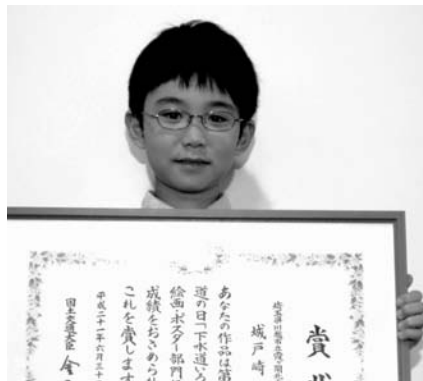 賞状
埼玉県川越市立霞ケ関北
城戸崎
あなたの作品は第
道の日「下水道いろ
絵画・ポスター部門
成績をおさめられ
これを賞します
平成二十一年六月三十
国土交通大臣 金